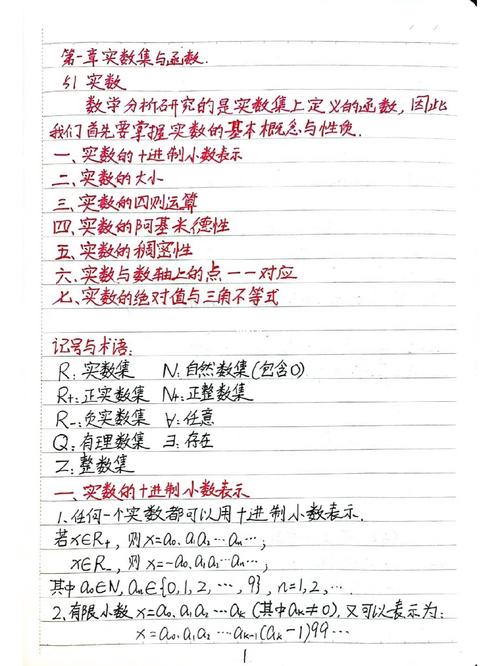 第一章实数集与函数.
§1 实数
数学分析研究的是实数集上定义的函数,因此
我们首先要掌握实数的基本概念与性质.
一、实数的十进制小数表示
二、实数的大小
三、实数的四则运算
四、实数的阿基米德性
五、实数的稠密性
六、实数与数轴上的点一一对应
七、实数的绝对值与三角不等式
记号与术语:
R:实数集 N:自然数集(包含0)
R+:正实数集 N+:正整数集
R-:负实数集 ∀:任意
Q:有理数集 ∃:存在
Z:整数集
一、实数的十进制小数表示
1、任何一个实数都可以用十进制小数表示.
若x∈R+,则x=a₀.a₁a₂…aₙ…;
x∈R-,则x=-a₀.a₁a₂…aₙ…;
其中a₀∈N,aₙ∈{0,1,2,…,9},n=1,2,…
2、有限小数x=a₀.a₁a₂…aₖ(其中aₖ≠0),又可以表示为:
x=a₀.a₁a₂…aₖ₋₁(aₖ-1)99…
1